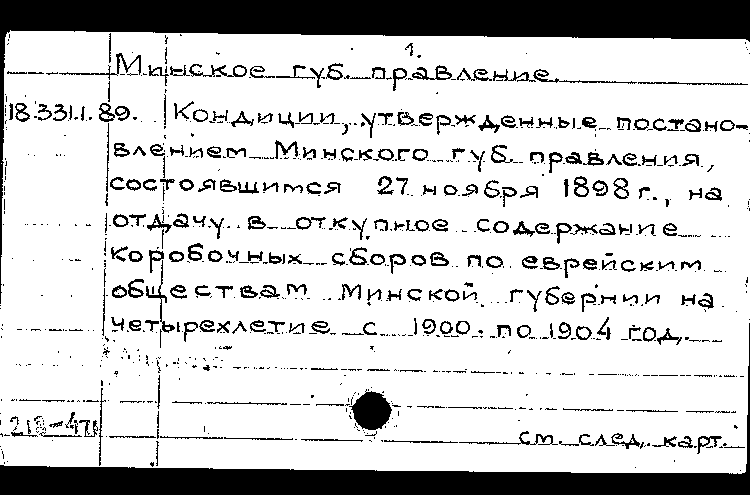 1.
Минское губ. правление.
18.331.1.89. Кондиции, утвержденные постано-
влением Минского губ. правления,
состоявшимся 27 ноября 1898 г., на
отдачу в откупное содержание
коробочных сборов по еврейским
обществам Минской губернии на
четырехлетие с 1900. по 1904 год.
218-471
см. след. карт.